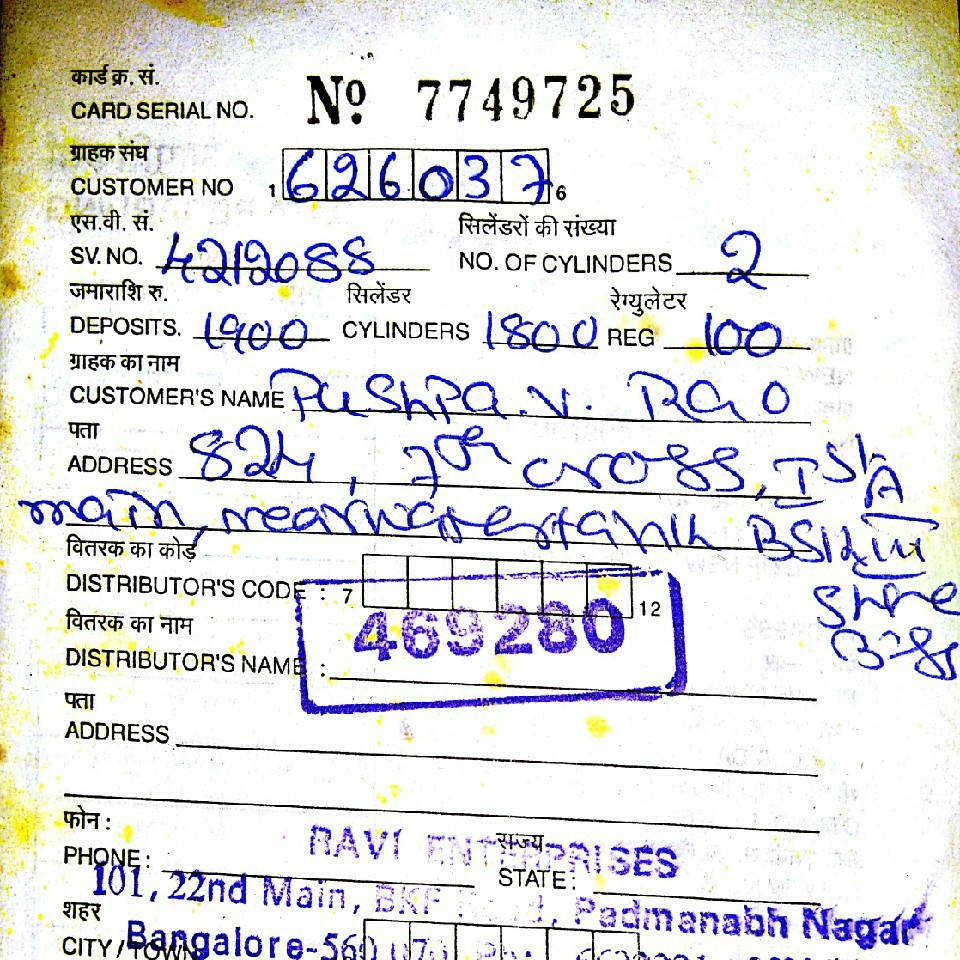 कार्ड क्र. सं.
CARD SERIAL NO. No 7749725
ग्राहक संघ
CUSTOMER NO 1 626037 6
एस.वी. सं. सिलेंडरों की संख्या
SV. NO. 4212088 NO. OF CYLINDERS 2
जमाराशि रु. सिलेंडर रेग्युलेटर
DEPOSITS. 1900 CYLINDERS 1800 REG 100
ग्राहक का नाम
CUSTOMER'S NAME Pushpa. V. Rao
पता
ADDRESS 824, 7th cross, Ist A
main, near watertank BSK III
वितरक का कोड़
DISTRIBUTOR'S CODE : 7 12
469280
वितरक का नाम
DISTRIBUTOR'S NAME :
पता
ADDRESS
फोन : राज्य
RAVI ENTERPRISES
PHONE : STATE :
101, 22nd Main, Padmanabh Nagar
शहर
CITY / TOWN Bangalore-560 070